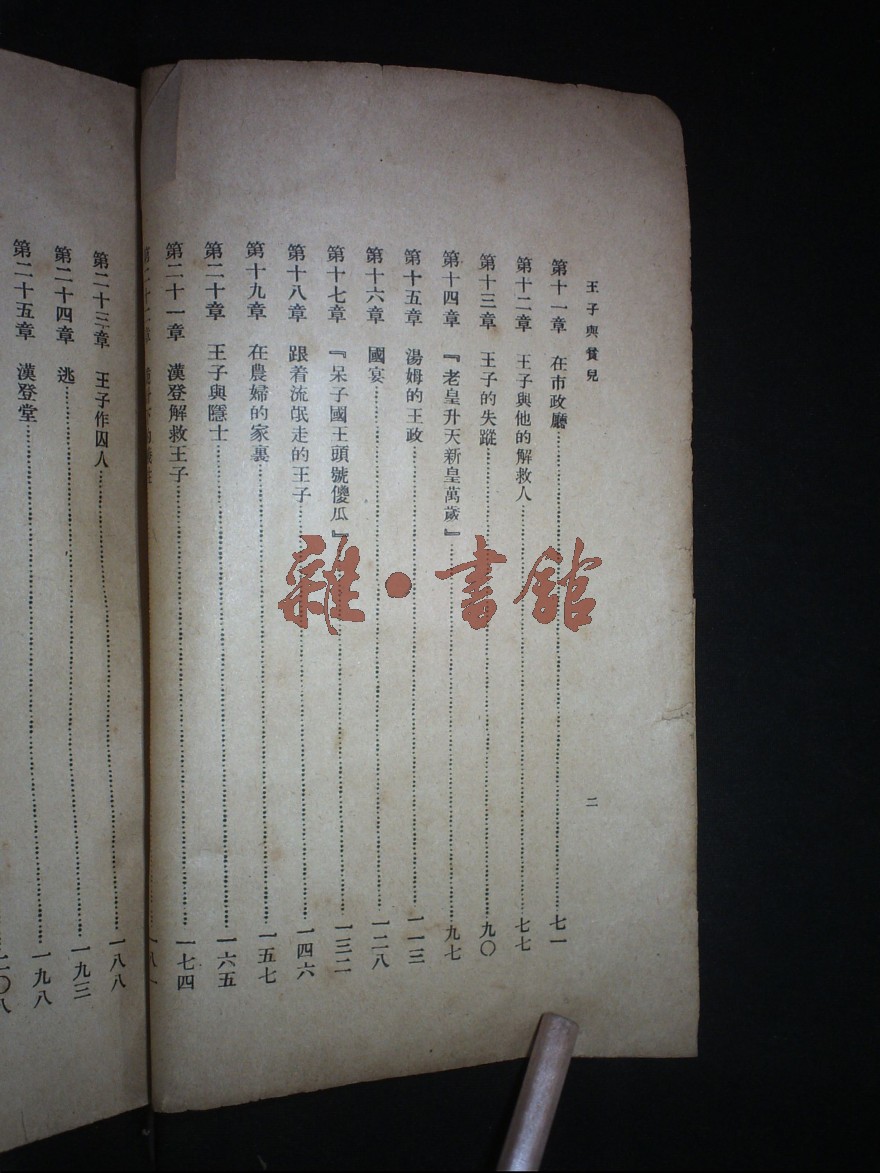 王子與貧兒
二
第十一章 在市政廳⋯⋯七一
第十二章 王子與他的解救人⋯⋯七七
第十三章 王子的失蹤⋯⋯九〇
第十四章 『老皇升天新皇萬歲』⋯⋯九七
第十五章 湯姆的王政⋯⋯一一三
第十六章 國宴⋯⋯一二八
第十七章 『呆子國王頭號傻瓜』⋯⋯一三二
第十八章 跟着流氓走的王子⋯⋯一四六
第十九章 在農婦的家裏⋯⋯一五七
第二十章 王子與隱士⋯⋯一六五
第二十一章 漢登解救王子⋯⋯一七四
第二十二章⋯⋯一八一
第二十三章 王子作囚人⋯⋯一八八
第二十四章 逃⋯⋯一九三
第二十五章 漢登堂⋯⋯一九八
二〇八
雜·書館